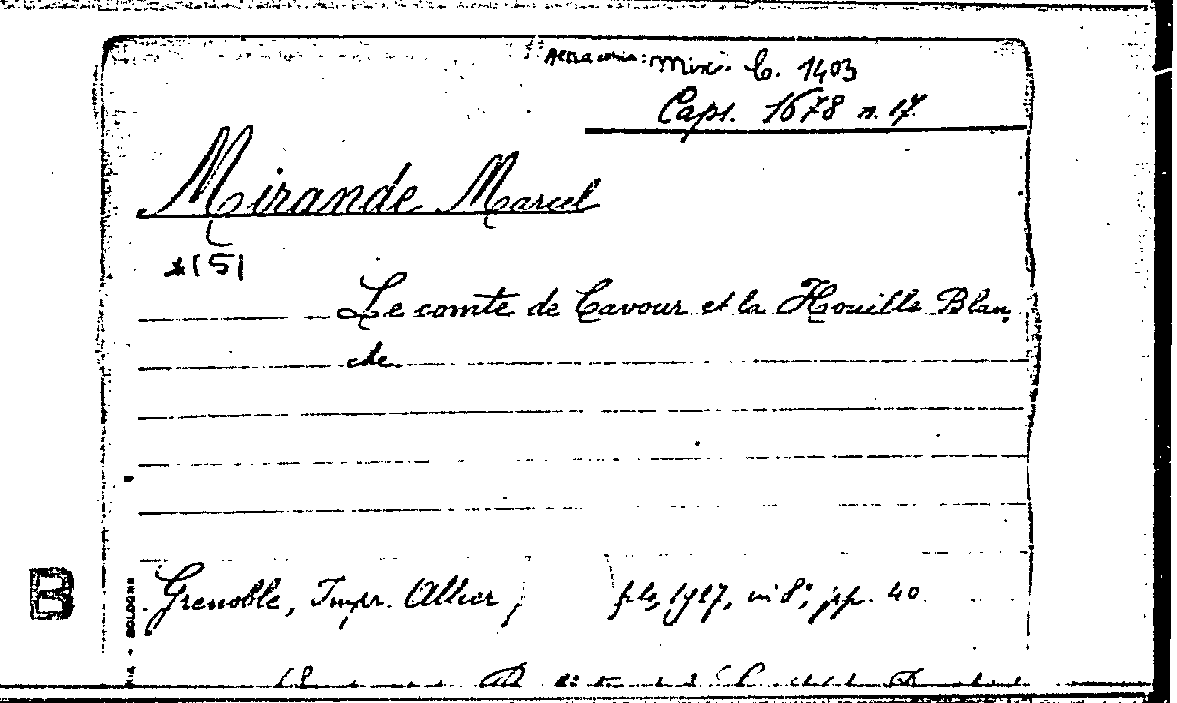 Misc. B. 1403
Caps. 1678 n. 17
Mirande Marcel
*(5)
Le comte de Cavour et la Houille Blan,
che
B
Grenoble, Impr. Allier, fils, 1927, in 8°, pp. 40
BOLOGNA